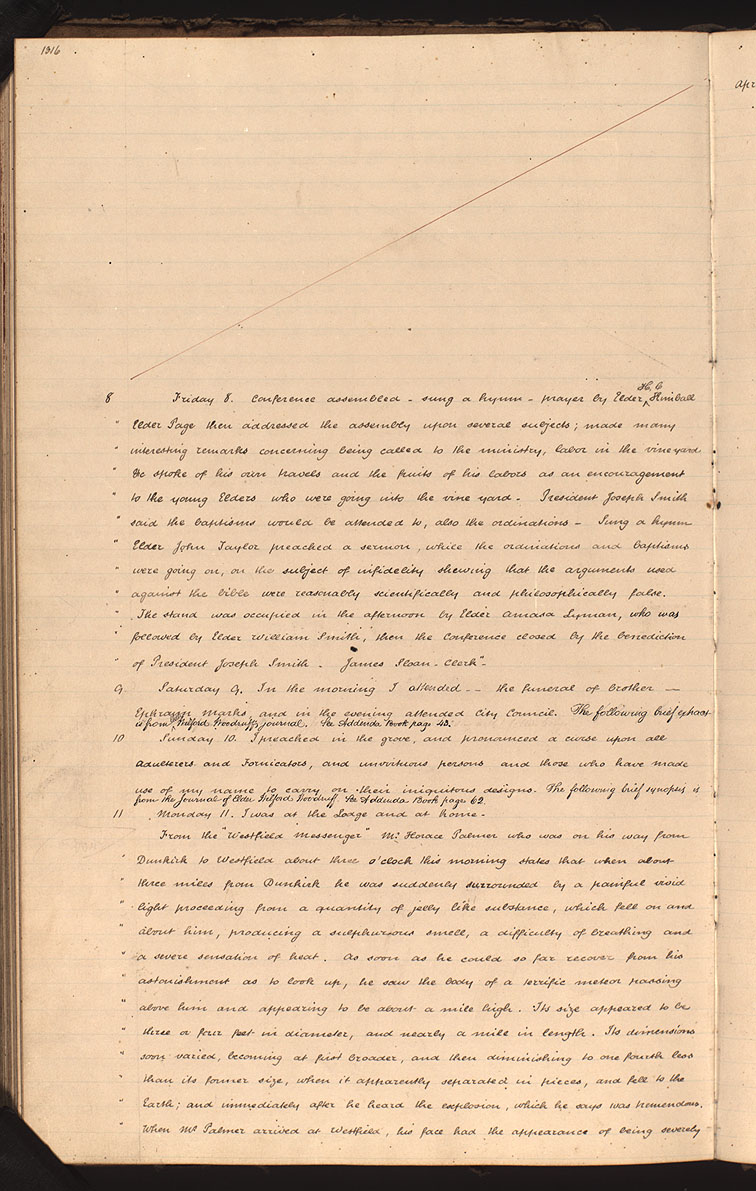 1316
Apr
H. C
8 Friday 8. Conference assembled - sung a hymn - prayer by Elder ^ Kimball
" Elder Page then addressed the assembly upon several subjects; made many
" interesting remarks concerning being called to the ministry, labor in the vineyard
" &c spoke of his own travels and the fruits of his labors as an encouragement
" to the young Elders who were going into the vine yard - President Joseph Smith
" said the baptisms would be attended to, also the ordinations - Sung a hymn
" Elder John Taylor preached a sermon, while the ordinations and baptisms
" were going on, on the subject of infidelity shewing that the arguments used
" against the bible were reasonably scientifically and philosophically false.
" The stand was occupied in the afternoon by Elder Amasa Lyman, who was
" followed by Elder William Smith, then the Conference closed by the benediction
" of President Joseph Smith - James Sloan - Clerk"-
9 Saturday 9. In the morning I attended -- the funeral of brother —
Ephraim Marks, and in the evening attended City Council. The following brief extract
is from Wilford Woodruff's journal. See Addenda Book page 43.
10 Sunday 10. I preached in the grove, and pronounced a curse upon all
Adulterers and Fornicators, and unvirtuous persons and those who have made
use of my name to carry on their iniquitous designs. The following brief synopsis is
from the Journal of Elder Wilford Woodruff. See Addenda Book page 62.
11 Monday 11. I was at the Lodge and at home -
From the "Westfield Messenger" Mr. Horace Palmer who was on his way from
" Dunkirk to Westfield about three o'clock this morning states that when about
" three miles from Dunkirk he was suddenly surrounded by a painful vivid
" light proceeding from a quantity of jelly like substance, which fell on and
" about him, producing a sulphurious smell, a difficulty of breathing and
" a severe sensation of heat. As soon as he could so far recover from his
" astonishment as to look up, he saw the body of a terrific meteor passing
" above him and appearing to be about a mile high. Its size appeared to be
" three or four feet in diameter, and nearly a mile in length. Its dimensions
" soon varied, becoming at first broader, and then diminishing to one fourth less
" than its former size, when it apparently separated in pieces, and fell to the
" Earth; and immediately after he heard the explosion, which he says was tremendous.
" When Mr Palmer arrived at Westfield, his face had the appearance of being severely